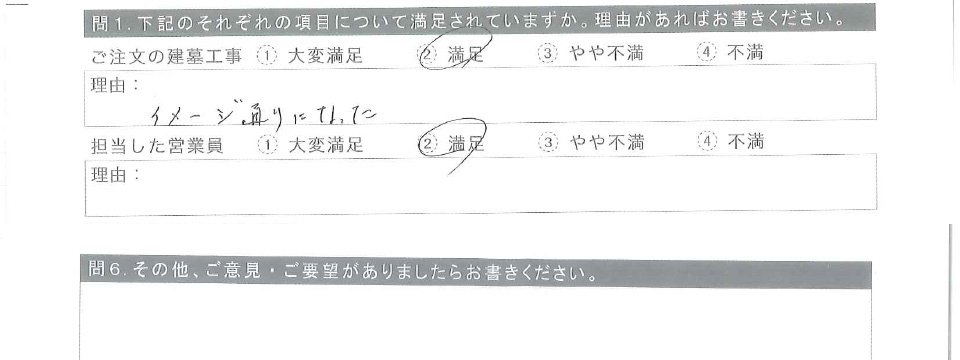 問1.下記のそれぞれの項目について満足されていますか。理由があればお書きください。
ご注文の建墓工事 ① 大変満足 ② 満足 ③ やや不満 ④ 不満
理由：
イメージ通りになった
担当した営業員 ① 大変満足 ② 満足 ③ やや不満 ④ 不満
理由：
問6.その他、ご意見・ご要望がありましたらお書きください。